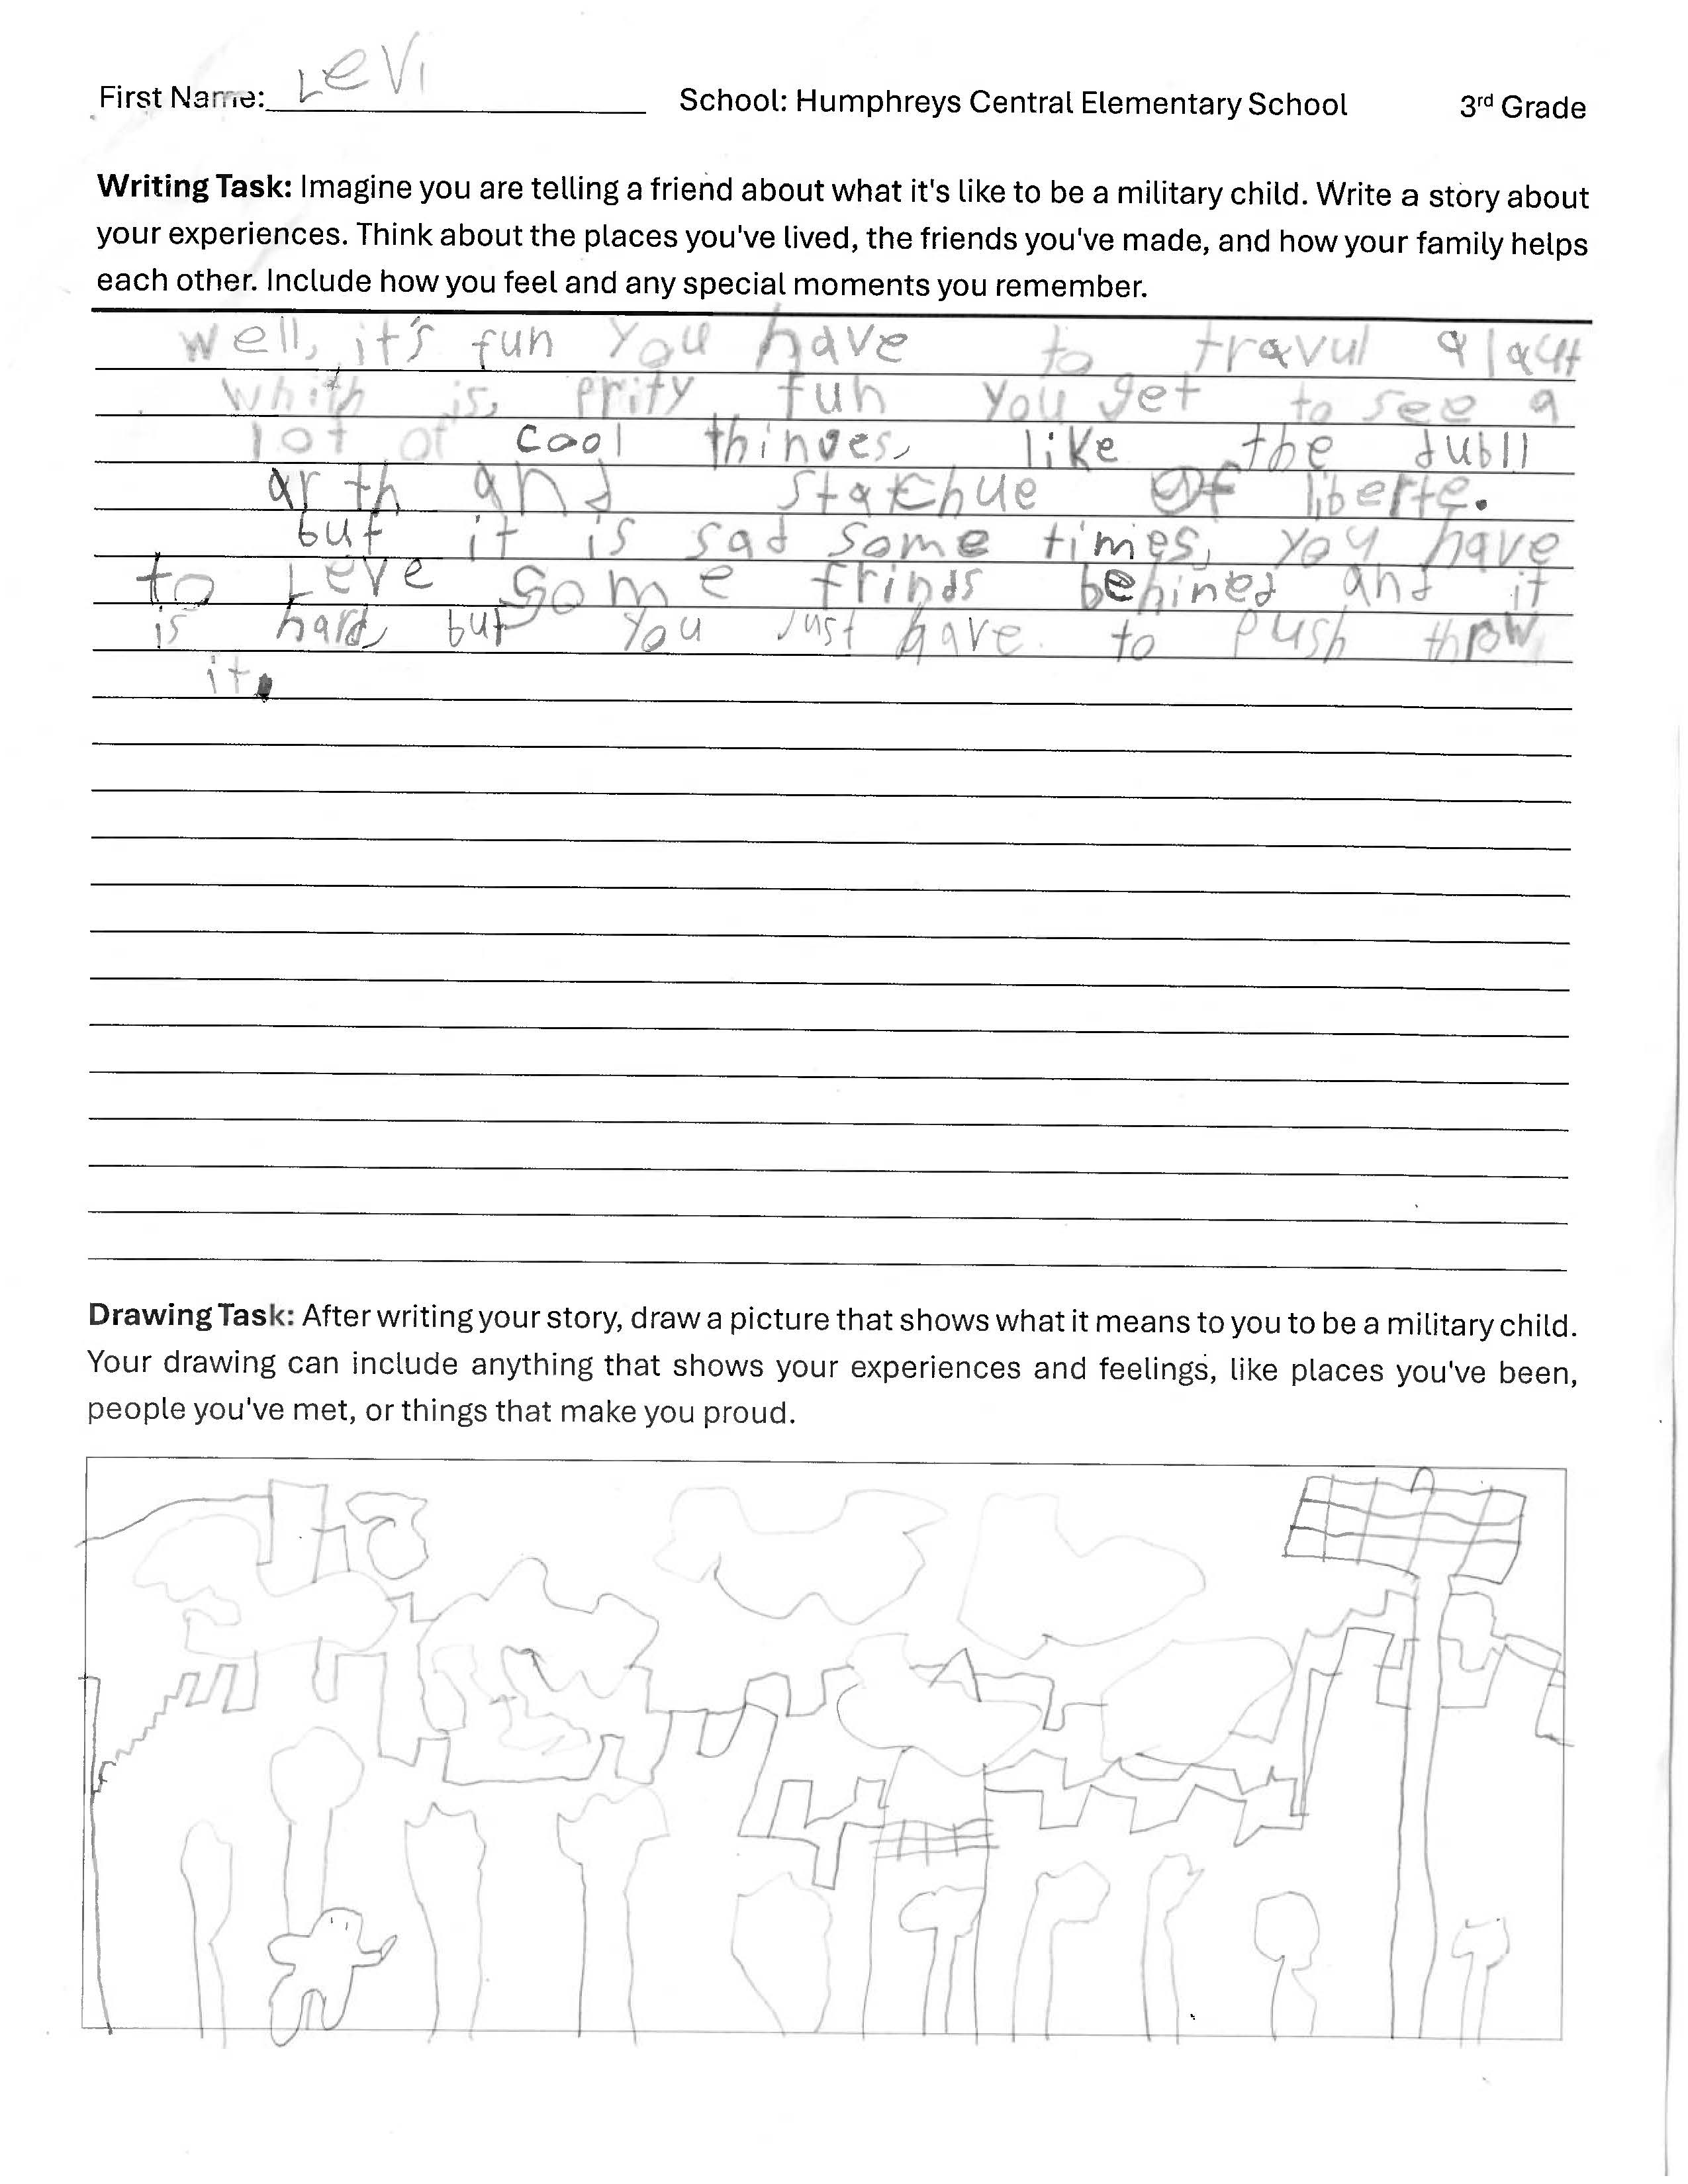 First Name: Levi School: Humphreys Central Elementary School 3rd Grade
Writing Task: Imagine you are telling a friend about what it's like to be a military child. Write a story about
your experiences. Think about the places you've lived, the friends you've made, and how your family helps
each other. Include how you feel and any special moments you remember.
well, it's fun you have to travul
whith is, prity fun you get to see a
lot of cool thinges, like the dubll
arth and statchue of liberte.
but it is sad some times, you have
to Leve some frinds behined and it
is hard, but you just have to push throw
it.
Drawing Task: After writing your story, draw a picture that shows what it means to you to be a military child.
Your drawing can include anything that shows your experiences and feelings, like places you've been,
people you've met, or things that make you proud.